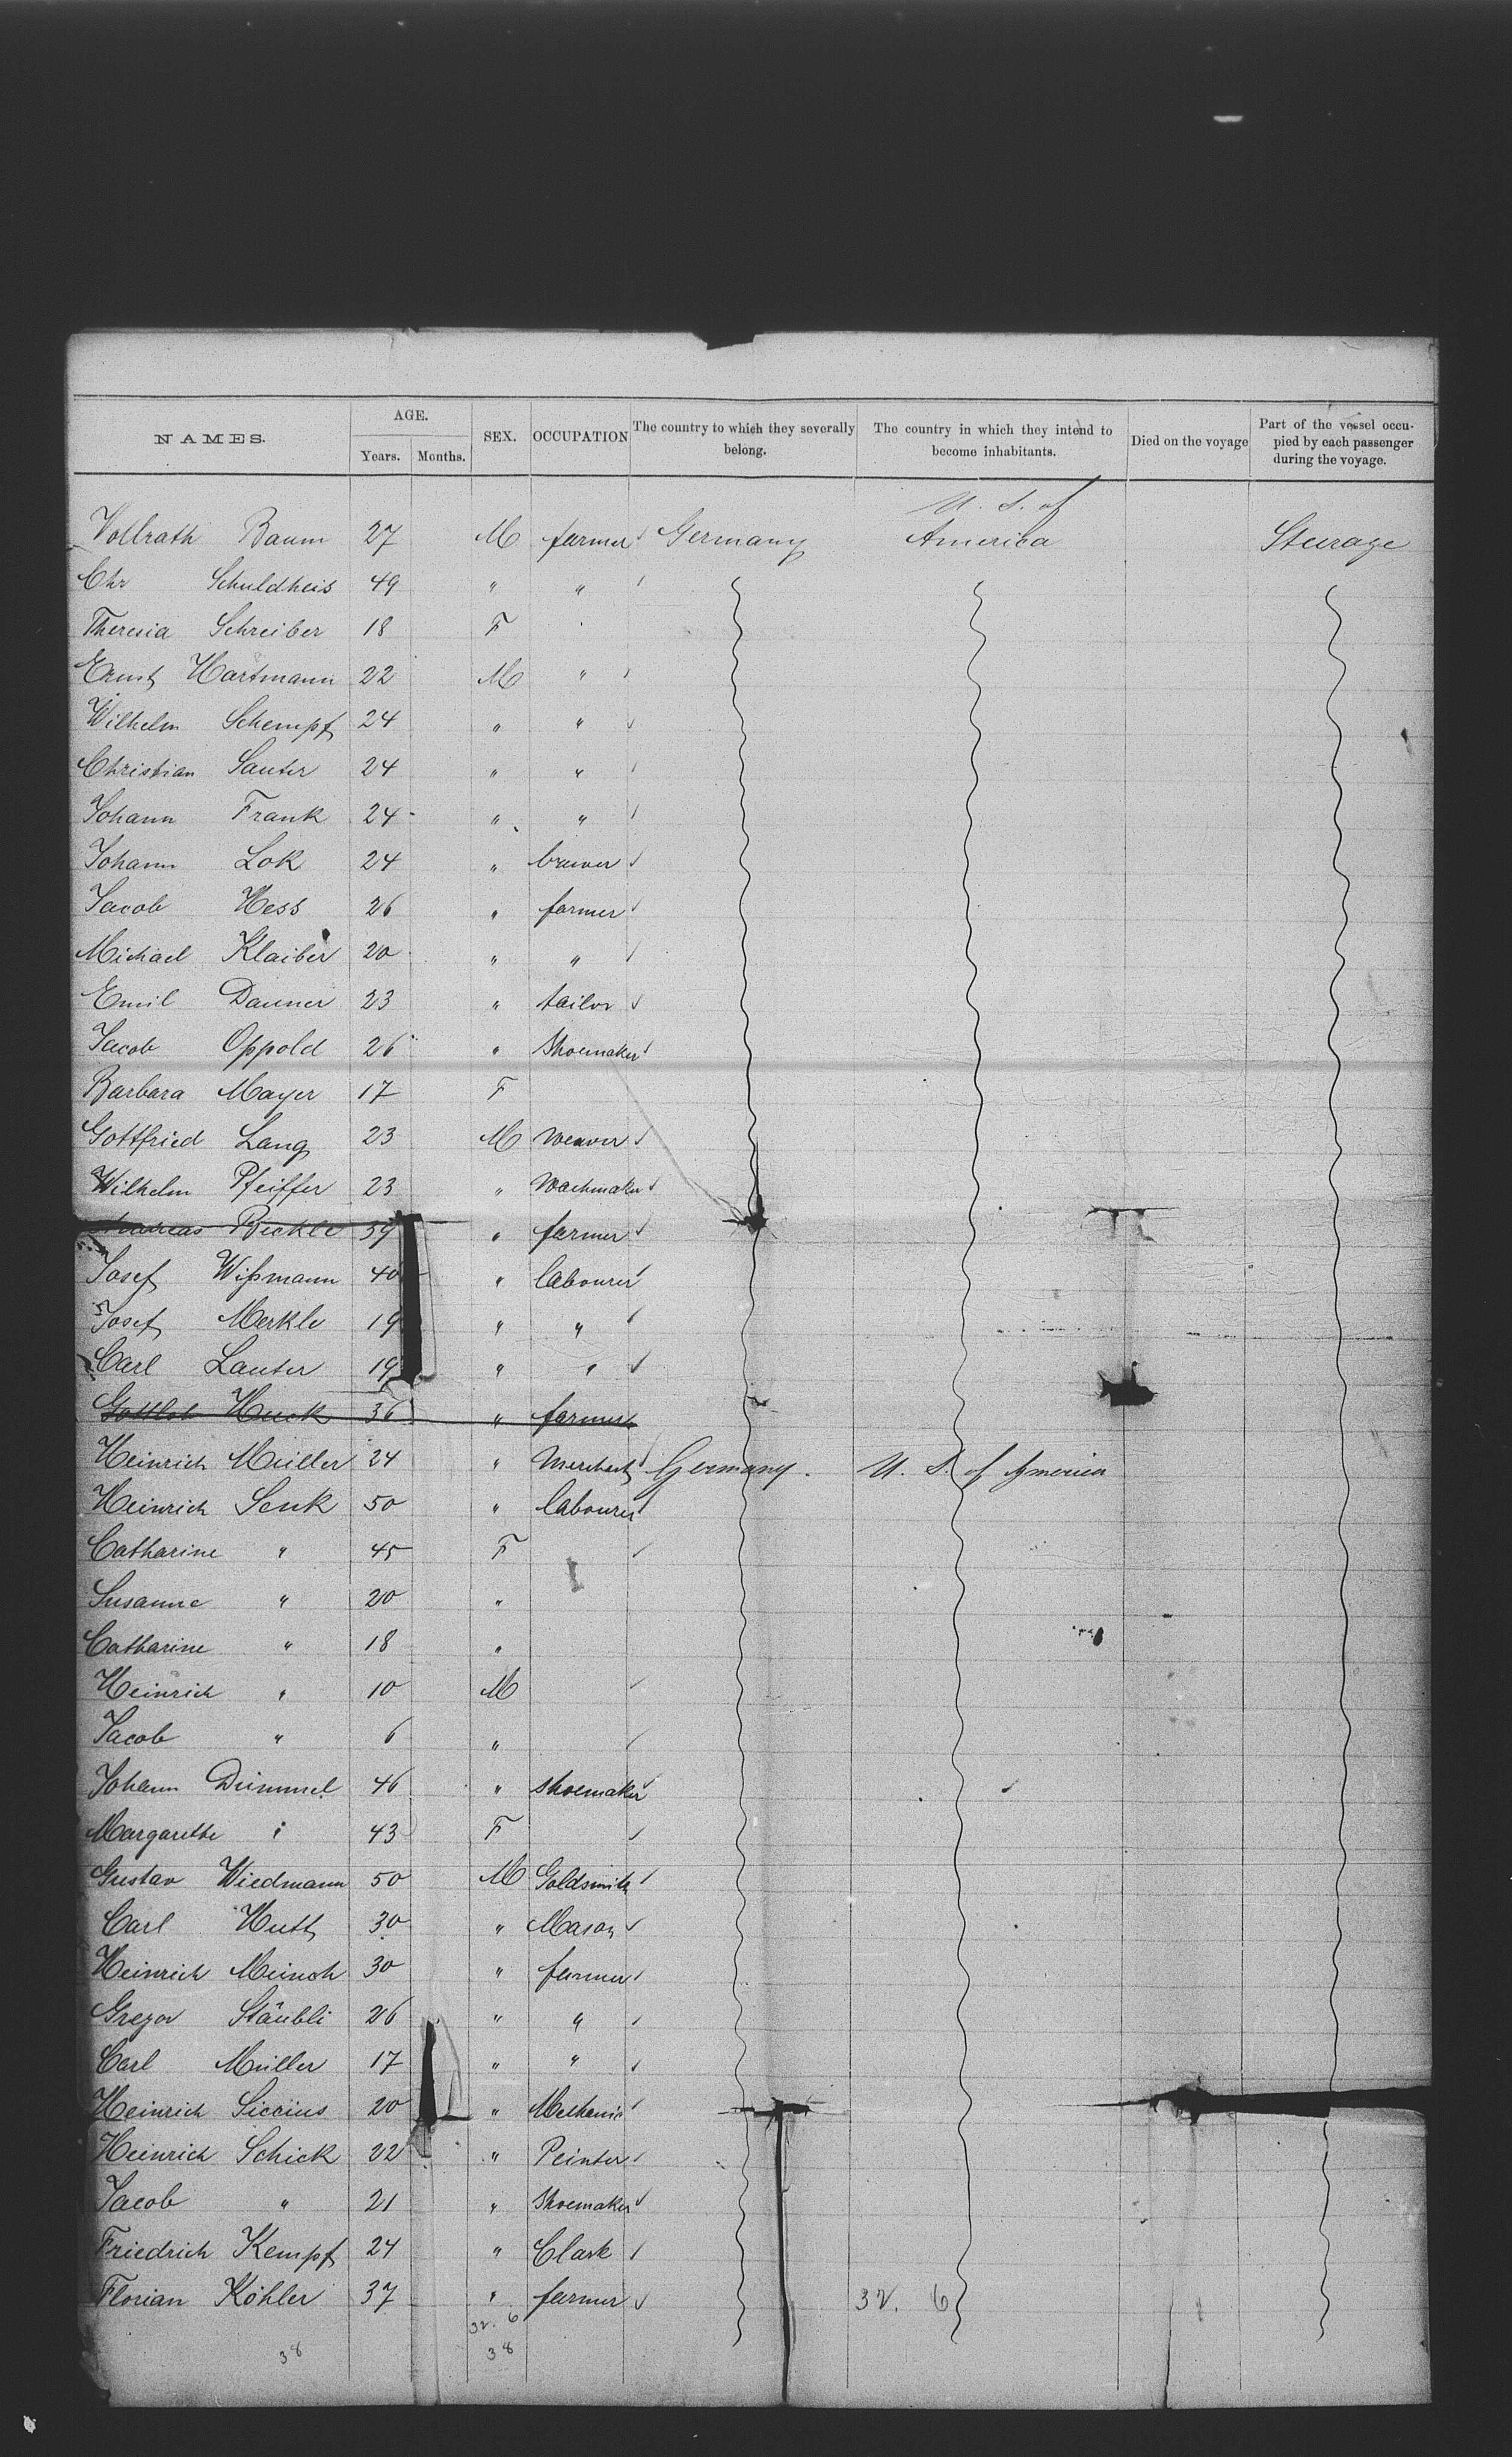 NAMES. AGE. Years. Months. SEX. OCCUPATION The country to which they severally belong. The country in which they intend to become inhabitants. Died on the voyage Part of the vessel occupied by each passenger during the voyage.
U. S. of
Vollrath Baum 27 M farmer Germany America Steerage
Chr Schuldheis 49 " "
Theresia Schreiber 18 F
Ernst Hartmann 22 M "
Wilhelm Schempf 24 " "
Christian Sauter 24 " "
Johann Frank 24 " "
Johann Lok 24 " brewer
Jacob Hess 26 " farmer
Michael Klaiber 20 " "
Emil Dauner 23 " tailor
Jacob Oppold 26 " Shoemaker
Barbara Mayer 17 F
Gottfried Lang 23 M weaver
Wilhelm Pfeiffer 23 " Wachmaker
Andreas Bickle 39 " farmer
Josef Wißmann 40 " labourer
Josef Merkle 19 " "
Carl Lauter 19 " "
Gottlob Huck 36 " farmer
Heinrich Müller 24 " Merchant Germany. U. S. of America
Heinrich Senk 50 " labourer
Catharine " 45 F
Susanne " 20 "
Catharine " 18 "
Heinrich " 10 M
Jacob " 6 "
Johann Dümmel 46 " shoemaker
Margarethe " 43 F
Gustav Wiedmann 50 M Goldsmith
Carl Huth 30 " Mason
Heinrich Meinch 30 " farmer
Gregor Stäubli 26 " "
Carl Müller 17 " "
Heinrich 20 " Mechanic
Heinrich Schick 22 " Peinter
Jacob " 21 " Shoemaker
Friedrich Kempf 24 " Clark
Florian Köhler 37 " farmer 32. 6
32. 6
38 38